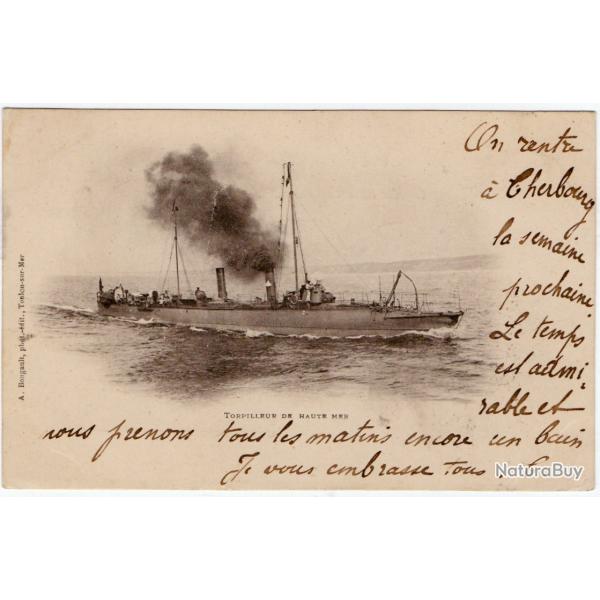 On rentre
à Cherbourg
la semaine
prochaine
Le temps
est admi
rable et
nous prenons tous les matins encore un bain
Je vous embrasse tous.
TORPILLEUR DE HAUTE MER
A. Bougault, phot.-édit., Toulon-sur-Mer
NaturaBuy